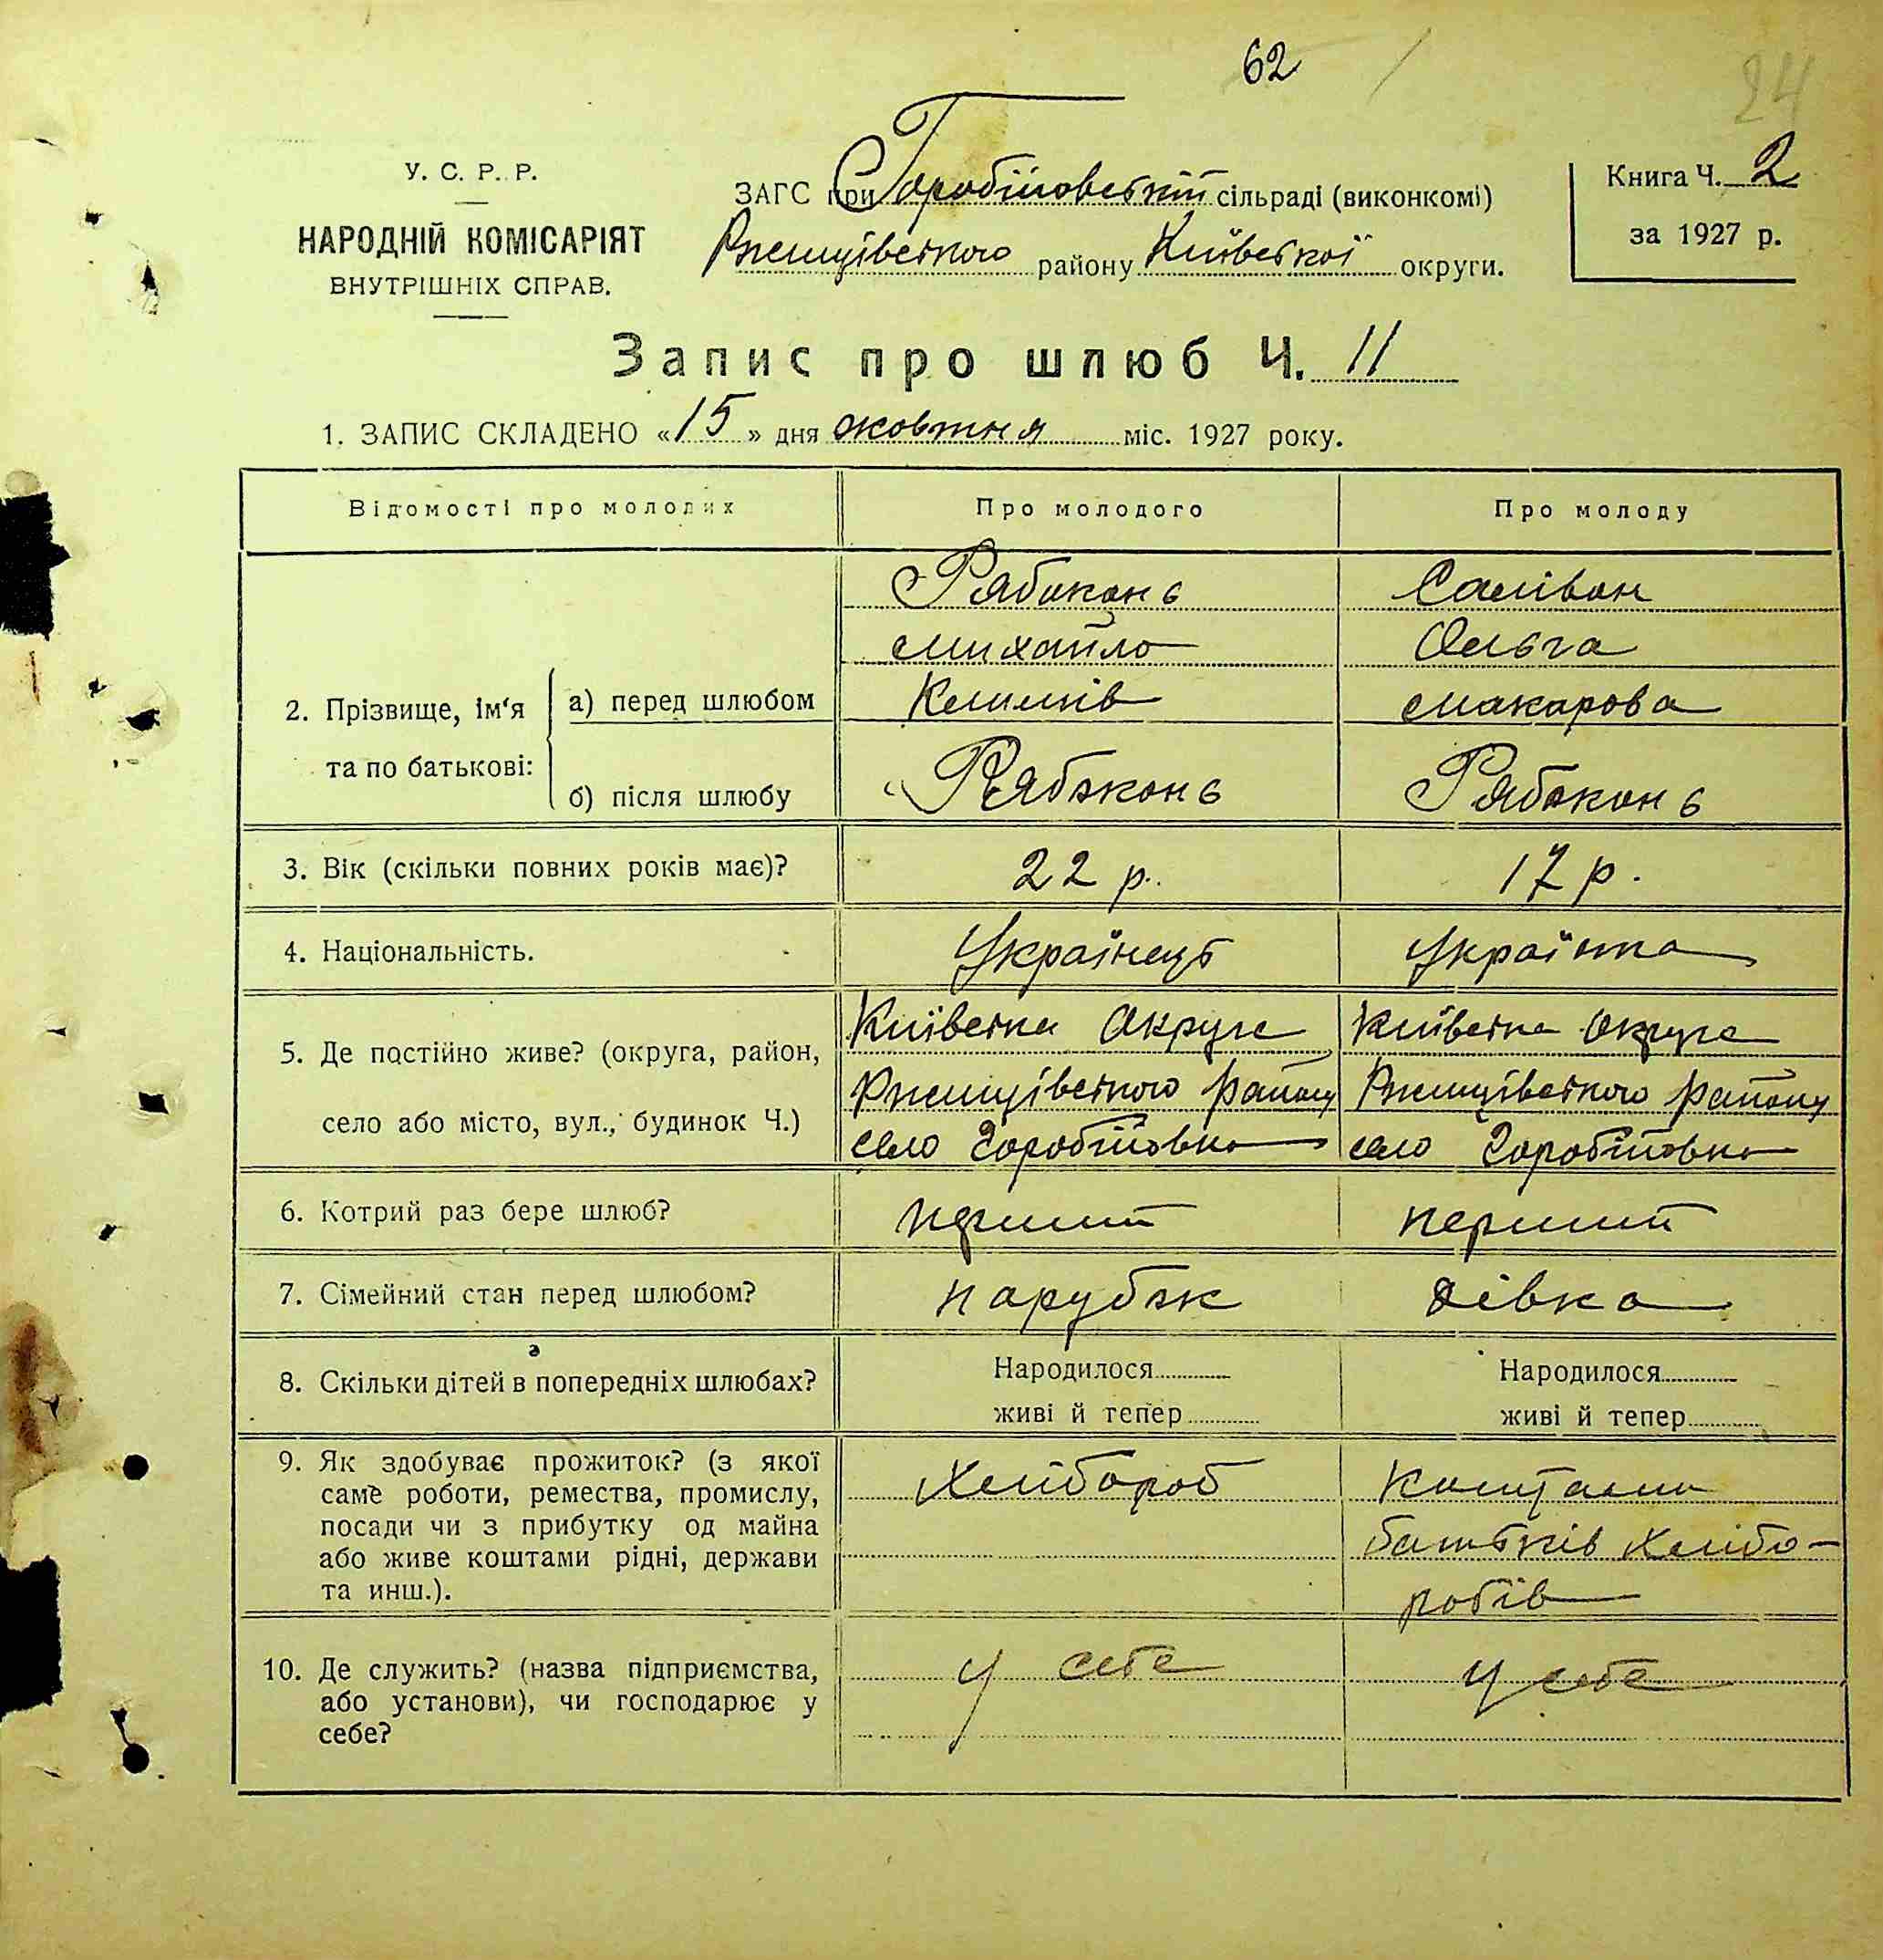 62
24
У. С. Р. Р.
НАРОДНІЙ КОМІСАРІЯТ
ВНУТРІШНІХ СПРАВ.
ЗАГС при Горобіївській сільраді (виконкомі)
Ржищівського району Київської округи.
Книга Ч. 2
за 1927 р.
Запис про шлюб Ч. 11
1. ЗАПИС СКЛАДЕНО «15» дня жовтня міс. 1927 року.
Відомості про молодих
Про молодого
Про молоду
2. Прізвище, ім'я та по батькові:
а) перед шлюбом
Рябоконь
Михайло
Климів
Салівон
Ольга
Макарова
б) після шлюбу
Рябоконь
Рябоконь
3. Вік (скільки повних років має)?
22 р.
17 р.
4. Національність.
Українець
Українка
5. Де постійно живе? (округа, район,
село або місто, вул., будинок Ч.)
Київська Округа
Ржищівського району
село Горобіївка
Київська Округа
Ржищівського району
село Горобіївка
6. Котрий раз бере шлюб?
перший
перший
7. Сімейний стан перед шлюбом?
парубок
дівка
8. Скільки дітей в попередніх шлюбах?
Народилося
живі й тепер
Народилося
живі й тепер
9. Як здобуває прожиток? (з якої
саме роботи, ремества, промислу,
посади чи з прибутку од майна
або живе коштами рідні, держави
та инш.).
Хлібороб
Коштами
батьків хлібо-
робів
10. Де служить? (назва підприємства,
або установи), чи господарює у
себе?
у себе
у себе